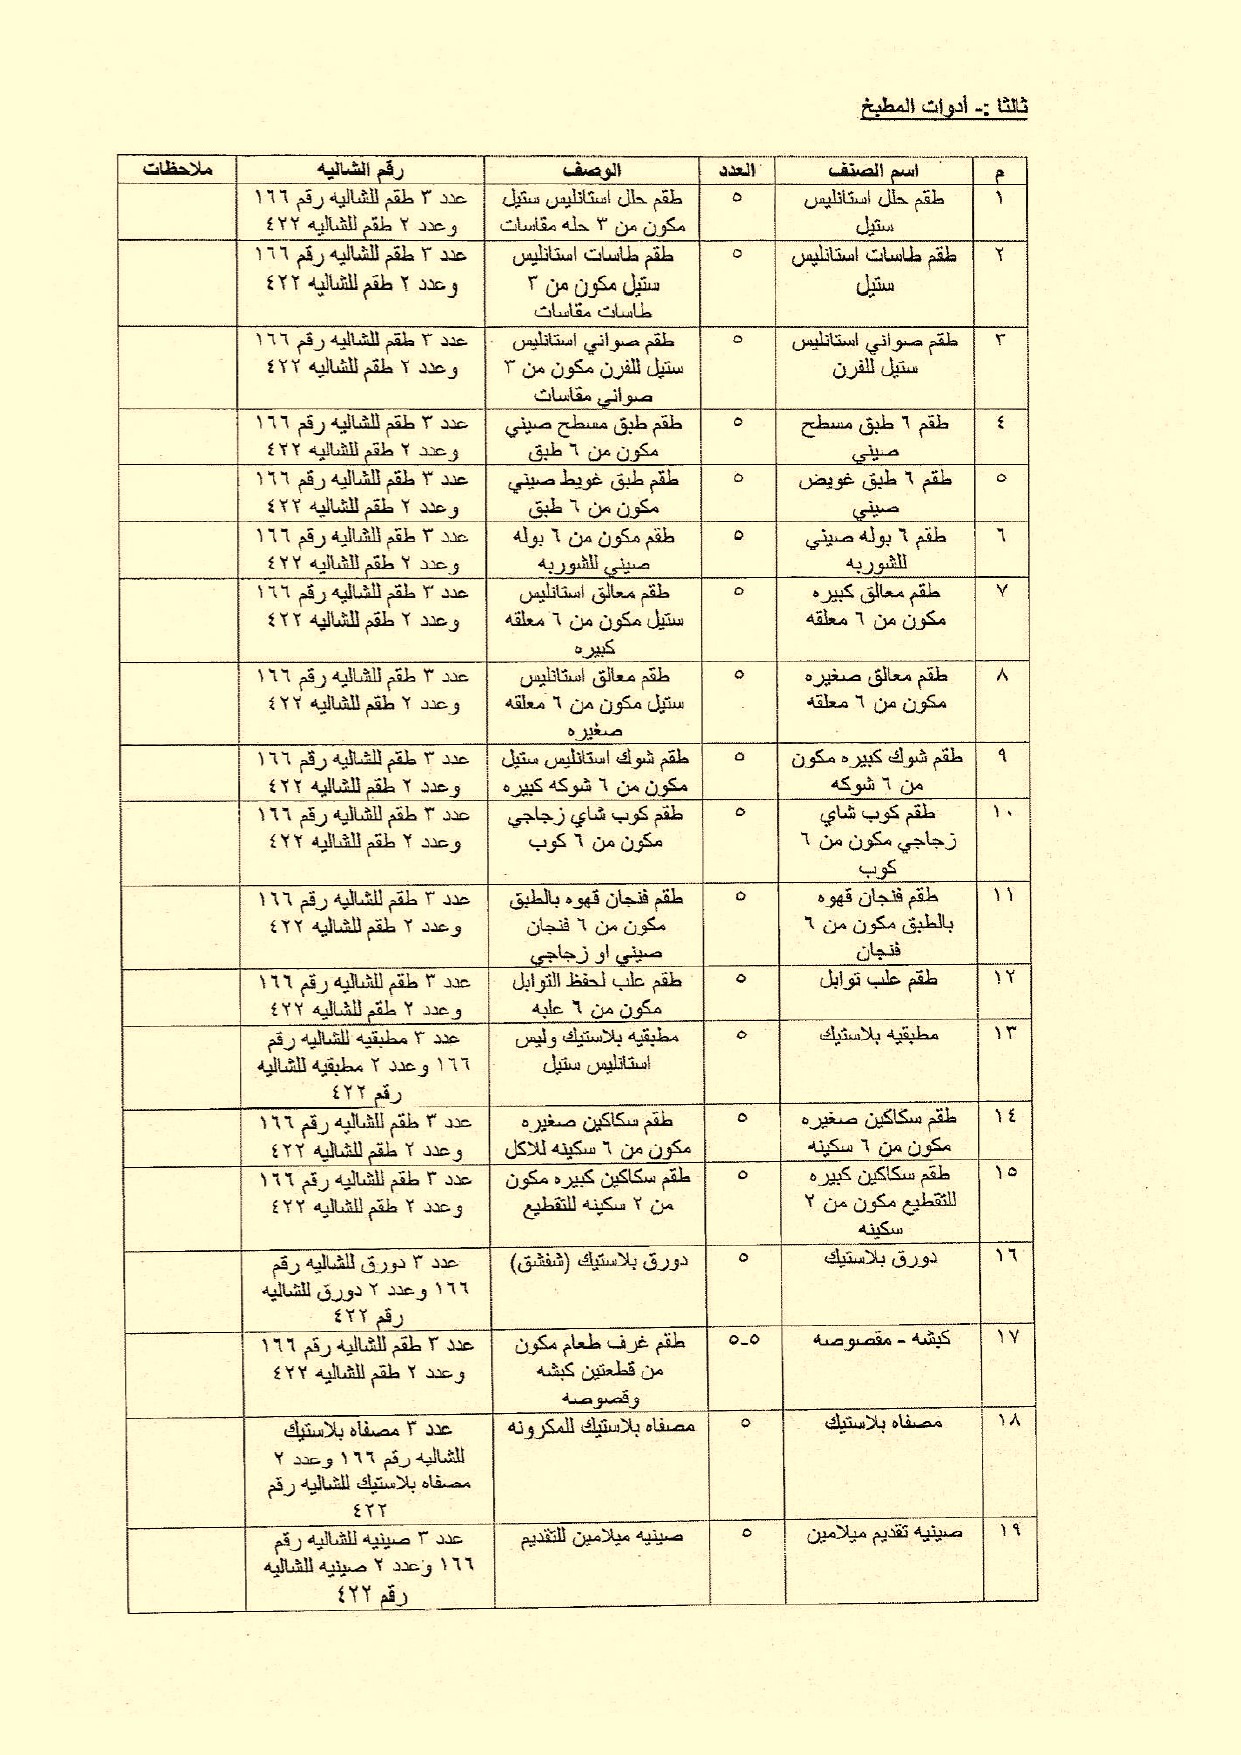 ثالثا :- أدوات المطبخ
م اسم الصنف العدد الوصف رقم الشاليه ملاحظات
١ طقم حلل استانليس ٥ طقم حلل استانليس ستيل عدد ٣ طقم للشاليه رقم ١٦٦
ستيل مكون من ٣ حله مقاسات وعدد ٢ طقم للشاليه ٤٢٢
٢ طقم طاسات استانليس ٥ طقم طاسات استانليس عدد ٣ طقم للشاليه رقم ١٦٦
ستيل ستيل مكون من ٣ وعدد ٢ طقم للشاليه ٤٢٢
طاسات مقاسات
٣ طقم صواني استانليس ٥ طقم صواني استانليس عدد ٣ طقم للشاليه رقم ١٦٦
ستيل للفرن ستيل للفرن مكون من ٣ وعدد ٢ طقم للشاليه ٤٢٢
صواني مقاسات
٤ طقم ٦ طبق مسطح ٥ طقم طبق مسطح صيني عدد ٣ طقم للشاليه رقم ١٦٦
صيني مكون من ٦ طبق وعدد ٢ طقم للشاليه ٤٢٢
٥ طقم ٦ طبق غويض ٥ طقم طبق غويط صيني عدد ٣ طقم للشاليه رقم ١٦٦
صيني مكون من ٦ طبق وعدد ٢ طقم للشاليه ٤٢٢
٦ طقم ٦ بوله صيني ٥ طقم مكون من ٦ بوله عدد ٣ طقم للشاليه رقم ١٦٦
للشوربه صيني للشوربه وعدد ٢ طقم للشاليه ٤٢٢
٧ طقم معالق كبيره ٥ طقم معالق استانليس عدد ٣ طقم للشاليه رقم ١٦٦
مكون من ٦ معلقه ستيل مكون من ٦ معلقه وعدد ٢ طقم للشاليه ٤٢٢
كبيره
٨ طقم معالق صغيره ٥ طقم معالق استانليس عدد ٣ طقم للشاليه رقم ١٦٦
مكون من ٦ معلقه ستيل مكون من ٦ معلقه وعدد ٢ طقم للشاليه ٤٢٢
صغيره
٩ طقم شوك كبيره مكون ٥ طقم شوك استانليس ستيل عدد ٣ طقم للشاليه رقم ١٦٦
من ٦ شوكه مكون من ٦ شوكه كبيره وعدد ٢ طقم للشاليه ٤٢٢
١٠ طقم كوب شاي ٥ طقم كوب شاي زجاجي عدد ٣ طقم للشاليه رقم ١٦٦
زجاجي مكون من ٦ مكون من ٦ كوب وعدد ٢ طقم للشاليه ٤٢٢
كوب
١١ طقم فنجان قهوه ٥ طقم فنجان قهوه بالطبق عدد ٣ طقم للشاليه رقم ١٦٦
بالطبق مكون من ٦ مكون من ٦ فنجان وعدد ٢ طقم للشاليه ٤٢٢
فنجان صيني او زجاجي
١٢ طقم علب توابل ٥ طقم علب لحفظ التوابل عدد ٣ طقم للشاليه رقم ١٦٦
مكون من ٦ علبه وعدد ٢ طقم للشاليه ٤٢٢
١٣ مطبقيه بلاستيك ٥ مطبقيه بلاستيك وليس عدد ٣ مطبقيه للشاليه رقم
استانليس ستيل ١٦٦ وعدد ٢ مطبقيه للشاليه
رقم ٤٢٢
١٤ طقم سكاكين صغيره ٥ طقم سكاكين صغيره عدد ٣ طقم للشاليه رقم ١٦٦
مكون من ٦ سكينه مكون من ٦ سكينه للاكل وعدد ٢ طقم للشاليه ٤٢٢
١٥ طقم سكاكين كبيره ٥ طقم سكاكين كبيره مكون عدد ٣ طقم للشاليه رقم ١٦٦
للتقطيع مكون من ٢ من ٢ سكينه للتقطيع وعدد ٢ طقم للشاليه ٤٢٢
سكينه
١٦ دورق بلاستيك ٥ دورق بلاستيك (شفشق) عدد ٣ دورق للشاليه رقم
١٦٦ وعدد ٢ دورق للشاليه
رقم ٤٢٢
١٧ كبشه - مقصوصه ٥-٥ طقم غرف طعام مكون عدد ٣ طقم للشاليه رقم ١٦٦
من قطعتين كبشه وعدد ٢ طقم للشاليه ٤٢٢
وقصوصه
١٨ مصفاه بلاستيك ٥ مصفاه بلاستيك للمكرونه عدد ٣ مصفاه بلاستيك
للشاليه رقم ١٦٦ وعدد ٢
مصفاه بلاستيك للشاليه رقم
٤٢٢
١٩ صينيه تقديم ميلامين ٥ صينيه ميلامين للتقديم عدد ٣ صينيه للشاليه رقم
١٦٦ وعدد ٢ صينيه للشاليه
رقم ٤٢٢